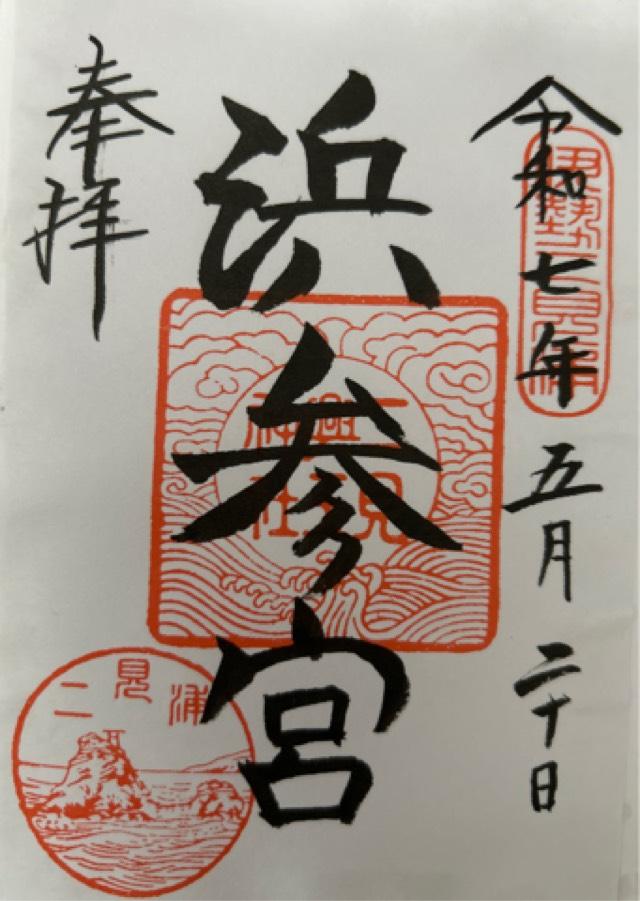 令和七年五月二十日
伊勢二見浦
浜参宮
二見
興玉
神社
奉拝
二見浦